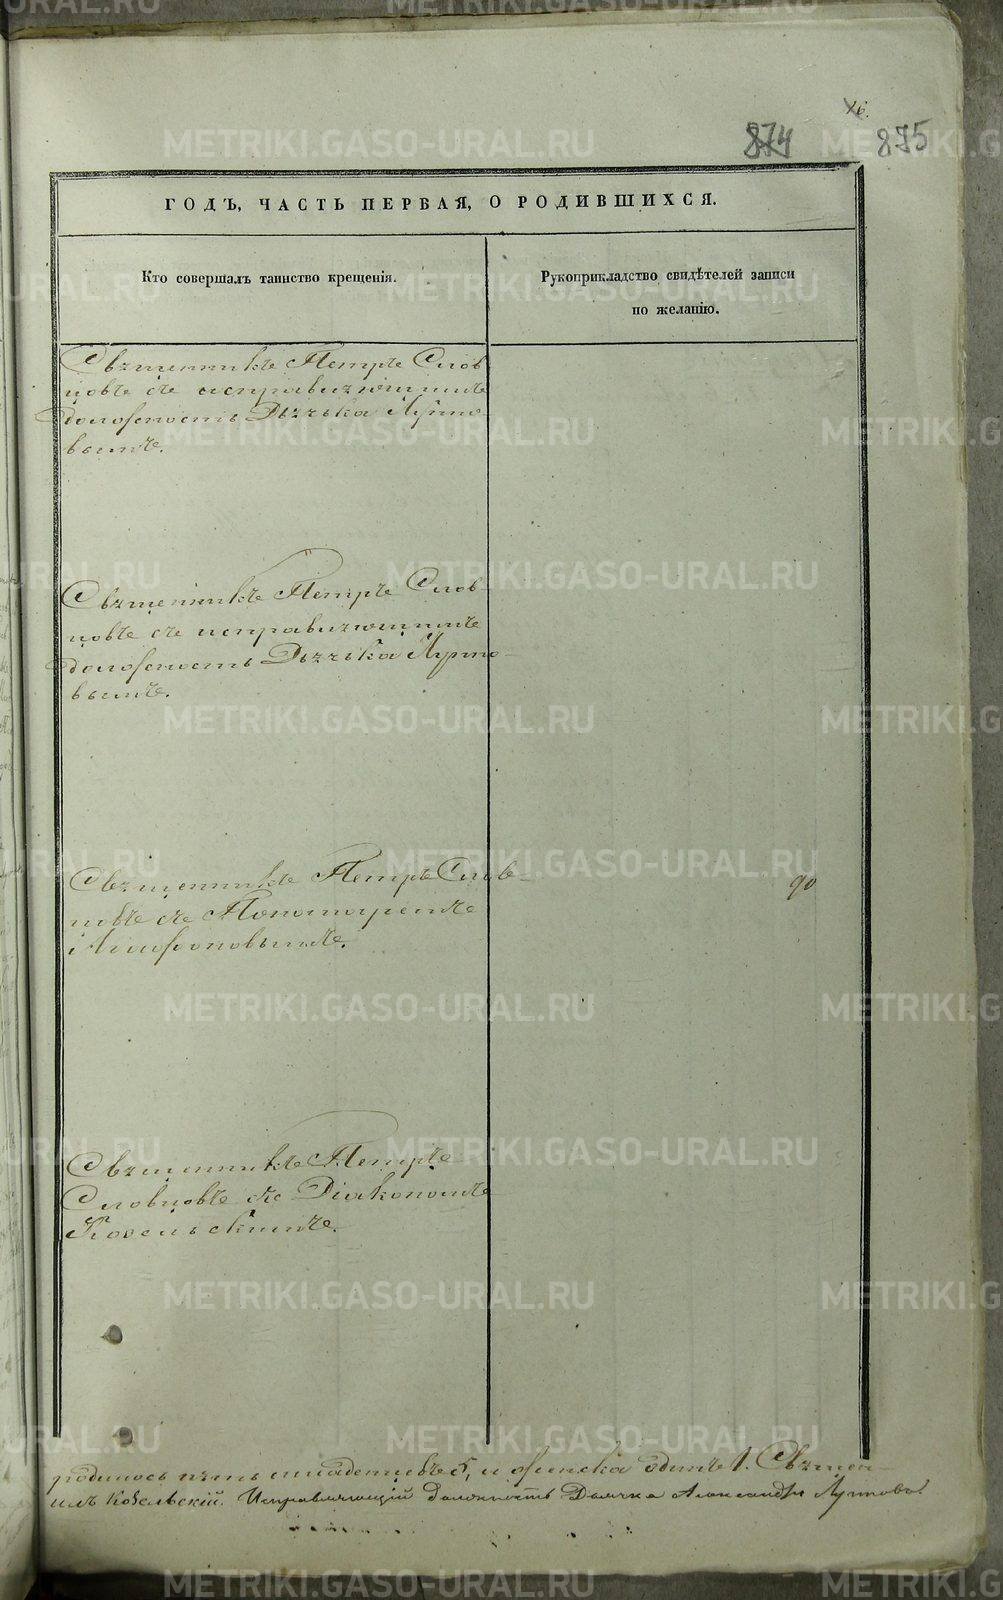 16.
874 875
ГОДЪ, ЧАСТЬ ПЕРВАЯ, О РОДИВШИХСЯ.
Кто совершалъ таинство крещенія.
Рукоприкладство свидѣтелей записи
по желанію.
Священникъ Петръ Слов-
цовъ съ исправляющимъ
должность Дьячка Луппо-
вымъ.
Священникъ Петръ Слов-
цовъ съ исправляющимъ
должность Дьячка Луппо-
вымъ.
Священникъ Петръ Слов-
цовъ съ Пономаремъ
90
Священникъ Петръ
Словцовъ съ Діакономъ
Козельскимъ.
родилось пять младенцевъ 5, и женска одинъ 1. Священ-
Козельскій. Исправляющій должность Дьячка Александръ Лупповъ
METRIKI.GASO-URAL.RU